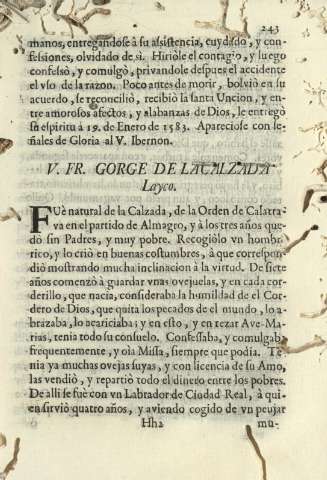 243
manos, entregandose à su asistencia, cuydado, y con-
fessiones, olvidado de si. Hiriòle el contagio, y luego
confesò, y comulgò, privandole despues el accidente
el vso de la razon. Poco antes de morir, bolviò en su
acuerdo, se reconciliò, recibiò la santa Uncion, y en-
tre amorosos afectos, y alabanzas de Dios, le entregò
su espiritu à 19. de Enero de 1583. Apareciose con se-
ñales de Gloria al V. Ibernon.
V. FR. GORGE DE LA CALZADA
Layco.
FUè natural de la Calzada, de la Orden de Calatra-
va en el partido de Almagro, y à los tres años que-
dò sin Padres, y muy pobre. Recogiòlo vn hombre
rico, y lo criò en buenas costumbres, à que correspon-
diò mostrando mucha inclinacion à la virtud. De siete
años comenzò à guardar vnas ovejuelas, y en cada cor-
derillo, que nacia, consideraba la humildad de el Cor-
dero de Dios, que quita los pecados de el mundo, lo a-
brazaba, lo acariciaba; y en esto, y en rezar Ave-Ma-
rias, tenia todo su consuelo. Confessaba, y comulgaba
frequentemente, y oìa Missa, siempre que podia. Te-
nia ya muchas ovejas suyas, y con licencia de su Amo,
las vendiò, y repartiò todo el dinero entre los pobres.
De alli se fuè con vn Labrador de Ciudad Real, à qui-
en sirviò quatro años, y aviendo cogido de vn peujar
Hh2 mu-